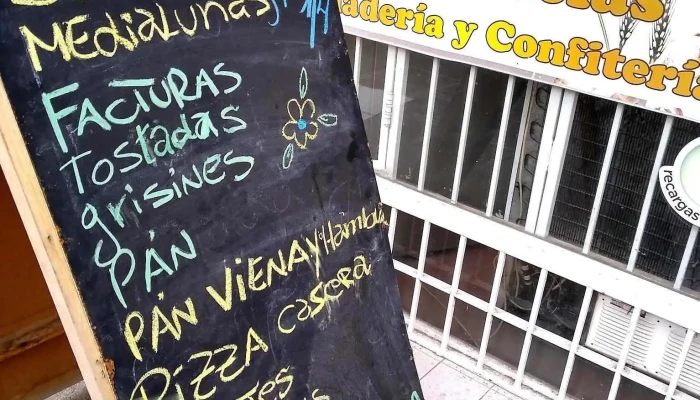 Medialunas
Facturas
Tostadas
grisines
PÁN
PÁN VIENA y Hambu
PIZZA casera
y Confitería
recargas